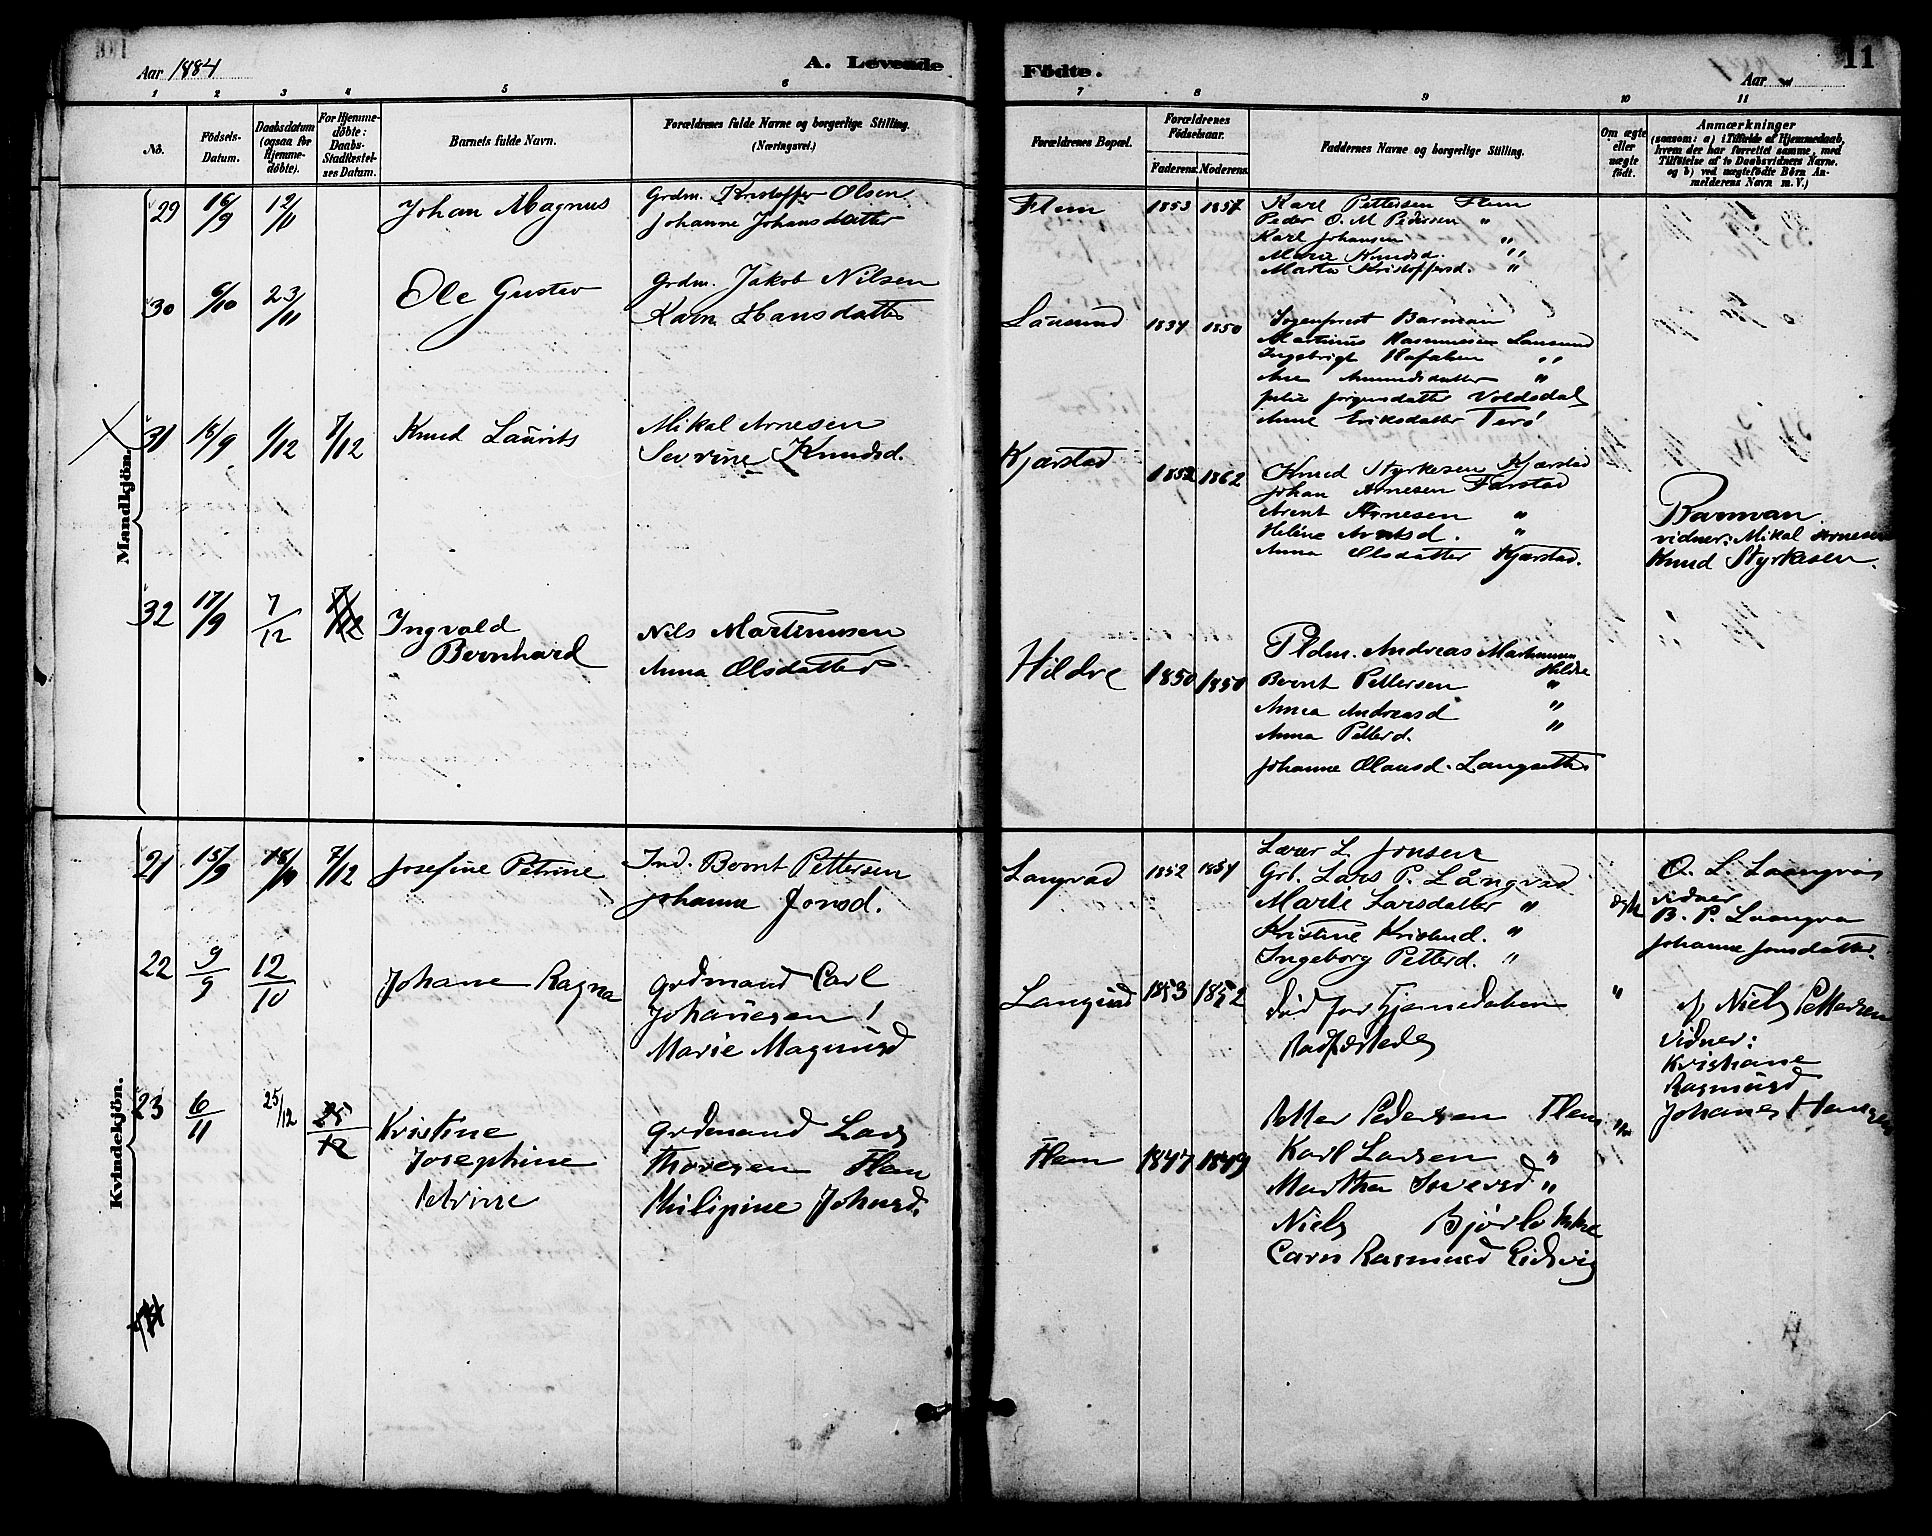 Aar 1884
A. Levende Födte.
Aar
11
1 2 3 4 5 6 7 8 9 10 11
No.
Födsels-Datum.
Daabsdatum (ogsaa for Hjemmedöbte).
For Hjemmedöbte: Daabs-Stadfæstelses Datum.
Barnets fulde Navn.
Forældrenes fulde Navne og borgerlige Stilling.
(Næringsvei.)
Forældrenes Bopæl.
Forældrenes Födselsaar.
Faderens. Moderens.
Faddernes Navne og borgerlige Stilling.
Om ægte eller uægte födt.
Anmærkninger
(saasom: a) i Tilfælde af Hjemmedaab, hvem der har forrettet samme, med Tilföielse af to Daabsvidners Navne, og b) ved uægtefödte Börn Anmelderens Navn m. V.)
Mandkjön.
29 16/9 12/11 Johan Magnus Grdm. Kristoffer Olsen
Johanne Johansdatter
Flem 1853 1857 Karl Pettersen Flem
Peder O. M Pedersen "
Karl Johansen "
Maria Knudsd. "
Marta Kristoffersd. "
30 6/10 23/11 Ole Gustav Grdm. Jakob Nilsen
Karn Hansdatter
Lausund 1834 1850 Sogneprest Barman
Martinus Rasmussen Lausund
Ingebrigt "
Ane Amundsdatter "
Julie Jörgensdatter Voldsdal
Anne Eriksdatter
31 16/9 1/12 7/12 Knud Laurits Mikal Arnesen
Sevrine Knudsd.
Kjærstad 1852 1862 Knud Styrkesen Kjærstad
Johan Arnesen Farstad
Arent Arnesen "
Heline Arntsd. "
Anna Olsdatter Kjærstad.
Barman.
vidner: Mikal Arnesen
Knud Styrkesen.
32 17/9 7/12 7/12 Ingvald
Bernhard
Nils Martinusen
Anna Olsdatter
Hildre 1850 1850 Pldm. Andreas Martinusen
Hildre
Bernt Pettersen "
Anna Andreasd "
Anna Petterd. "
Johanne Olausd. Langseth
Kvindekjön.
21 15/9 18/10 7/12 Josefine Petrine Ind. Bernt Pettersen
Johanne Jonsd.
Langvad 1852 1854 Lærer L. Jonsen
Grb. Lars P. Långvad
Marie Larsdatter "
Kristine Kristind. "
Ingeborg Petterd. "
ægte
O. L. Laangva
vidner
B. P. Laangva
Johanne Jonsdatter.
22 9/9 12/10 Johane Ragna grdmand Carl
Johanesen !
Marie Magnusd
1853 1852 död før Hjemmedaben
Stadfæstedes
"
af Niels Pettersen
Vidner:
Kristiane
Rasmusd
Johanes Hansen
23 6/11 25/12 25/12 Kristine
Josephine
Petrine
grdmand Lars
Thoresen Flem
Philipine Johnsd.
Flem 1847 1849 Petter Pedersen Flem
Karl Larsen "
Martha Iversd "
Niels Bjørlo
Caren Rasmusd Eidsvig
"